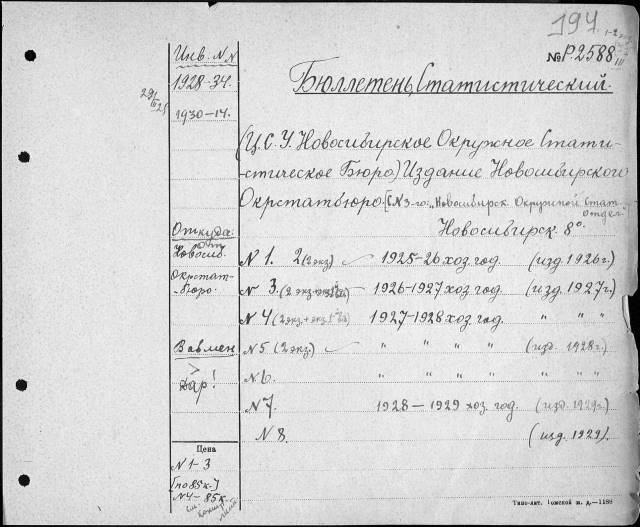 194
№ Р.2588
III
Инв. NN
1928-34.
1930-14.
Бюллетень, Статистический.
(Ц.С.У. Новосибирское Окружное Стати-
-стическое Бюро) Издание Новосибирского
Окрстатбюро. [с N3-го: „Новосибирск. Окружной Стат.
отдел"
Новосибирск. 8º.
Откуда:
Новосиб.
Окрстат-
-бюро.
N 1. 2 (2 экз) 1925-26 хоз. год. (изд. 1926 г.)
N 3. (2 экз 1926-1927 хоз. год. (изд. 1927 г.)
N 4 (2 экз. + экз. 1927-1928 хоз. год. " " "
В обмен
N 5 (2 экз.) " " " " (изд. 1928 г.)
Дар!
N 6. " " " " " " "
N 7. 1928-1929 хоз. год. (изд. 1929 г.)
N 8. (изд. 1929).
Цена
N 1-3
[по 85 к.]
N4- 85к.
Типо-лит. Томской ж. д.—1188